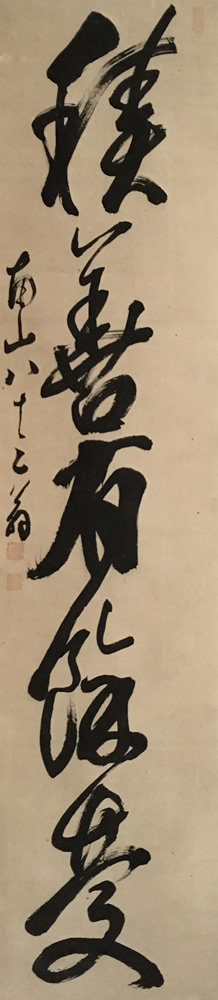 積善有餘慶
南山八十二翁